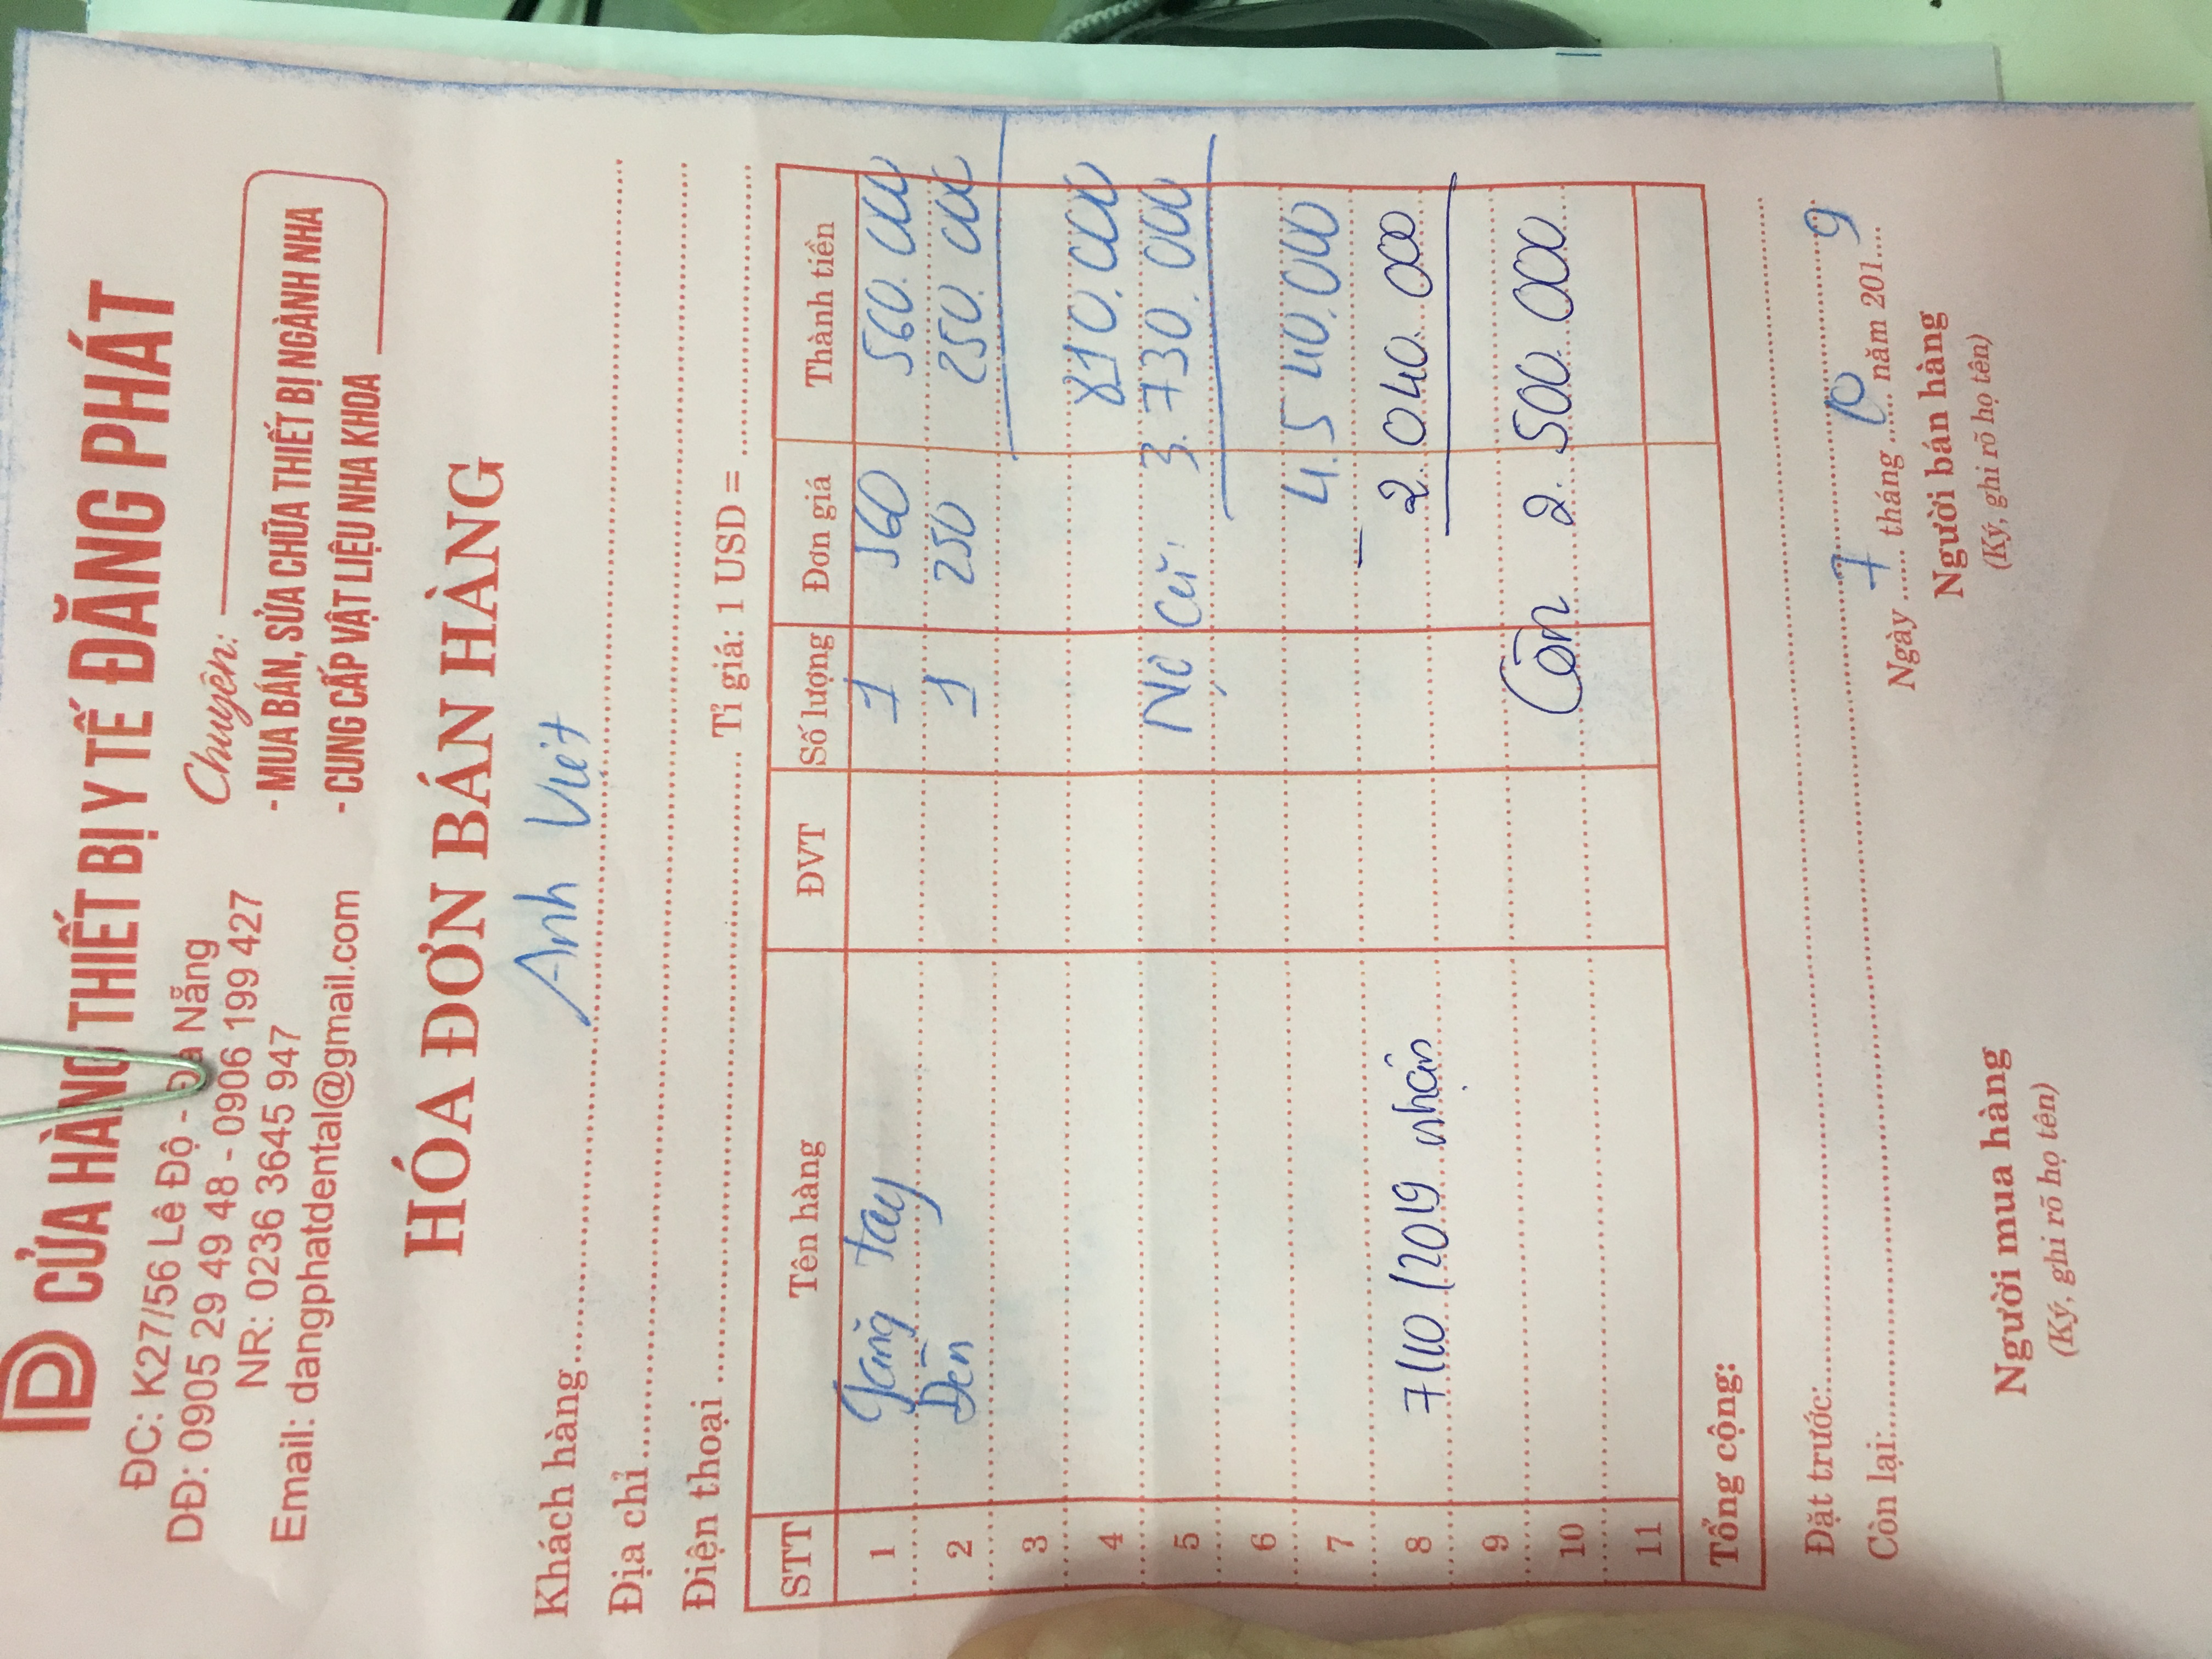 CỬA HÀNG THIẾT BỊ Y TẾ ĐĂNG PHÁT
ĐC: K27/56 Lê Độ - Đà Nẵng
DĐ: 0905 29 49 48 - 0906 199 427
NR: 0236 3645 947
Email: dangphatdental@gmail.com
Chuyên:
- MUA BÁN, SỬA CHỮA THIẾT BỊ NGÀNH NHA
- CUNG CẤP VẬT LIỆU NHA KHOA
HÓA ĐƠN BÁN HÀNG
Khách hàng Anh Việt
Địa chỉ
Điện thoại Tỉ giá: 1 USD =
STT Tên hàng ĐVT Số lượng Đơn giá Thành tiền
1 găng tay 1 560 560.000
2 Đèn 1 250 250.000
3
4 810.000
5 Nợ cũ: 3.730.000
6
7 4.540.000
8 7/10/2019 nhận - 2.040.000
9
10 Còn 2.500.000
11
Tổng cộng:
Đặt trước:
Còn lại:
Ngày 7 tháng 10 năm 2019
Người bán hàng
(Ký, ghi rõ họ tên)
Người mua hàng
(Ký, ghi rõ họ tên)